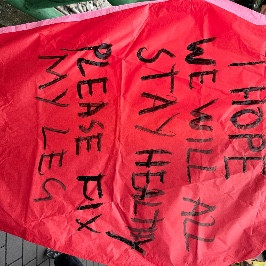 I HOPE
WE WILL ALL
STAY HEALTHY
PLEASE FIX
MY LEG